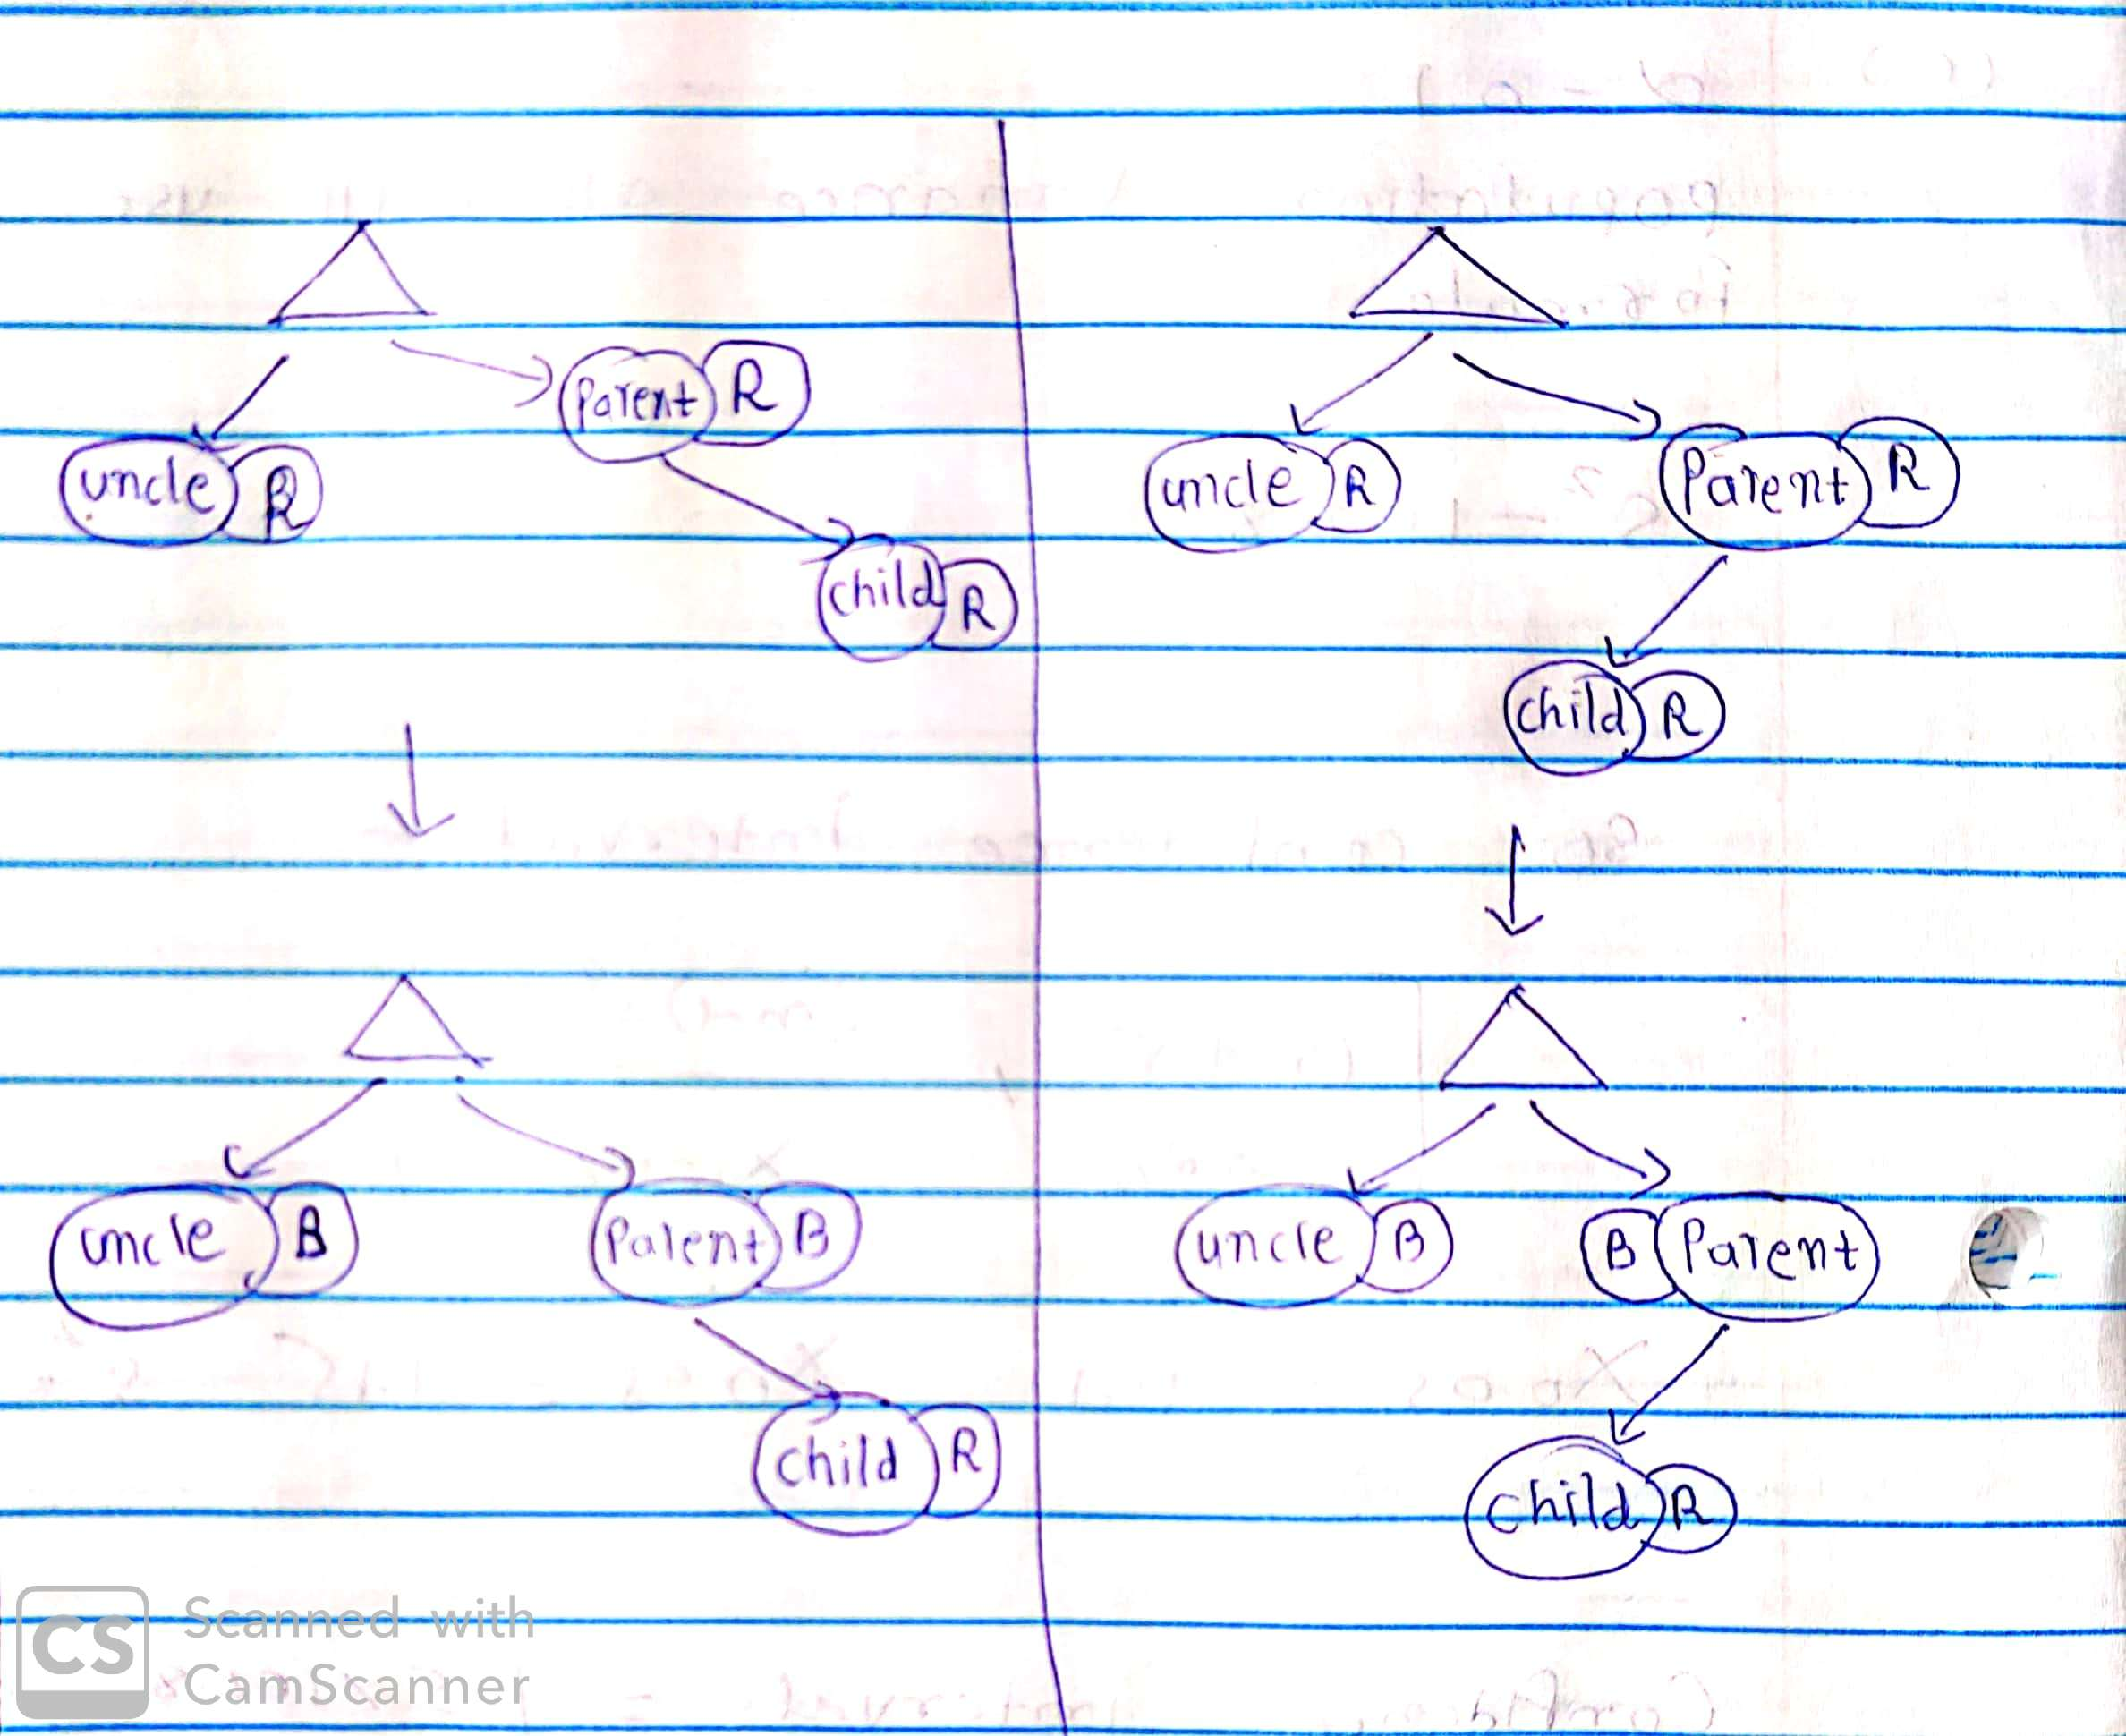 Parent R
uncle R
child R
uncle B
Parent B
child R
uncle R
Parent R
child R
uncle B
B Parent
child R
CS Scanned with
CamScanner